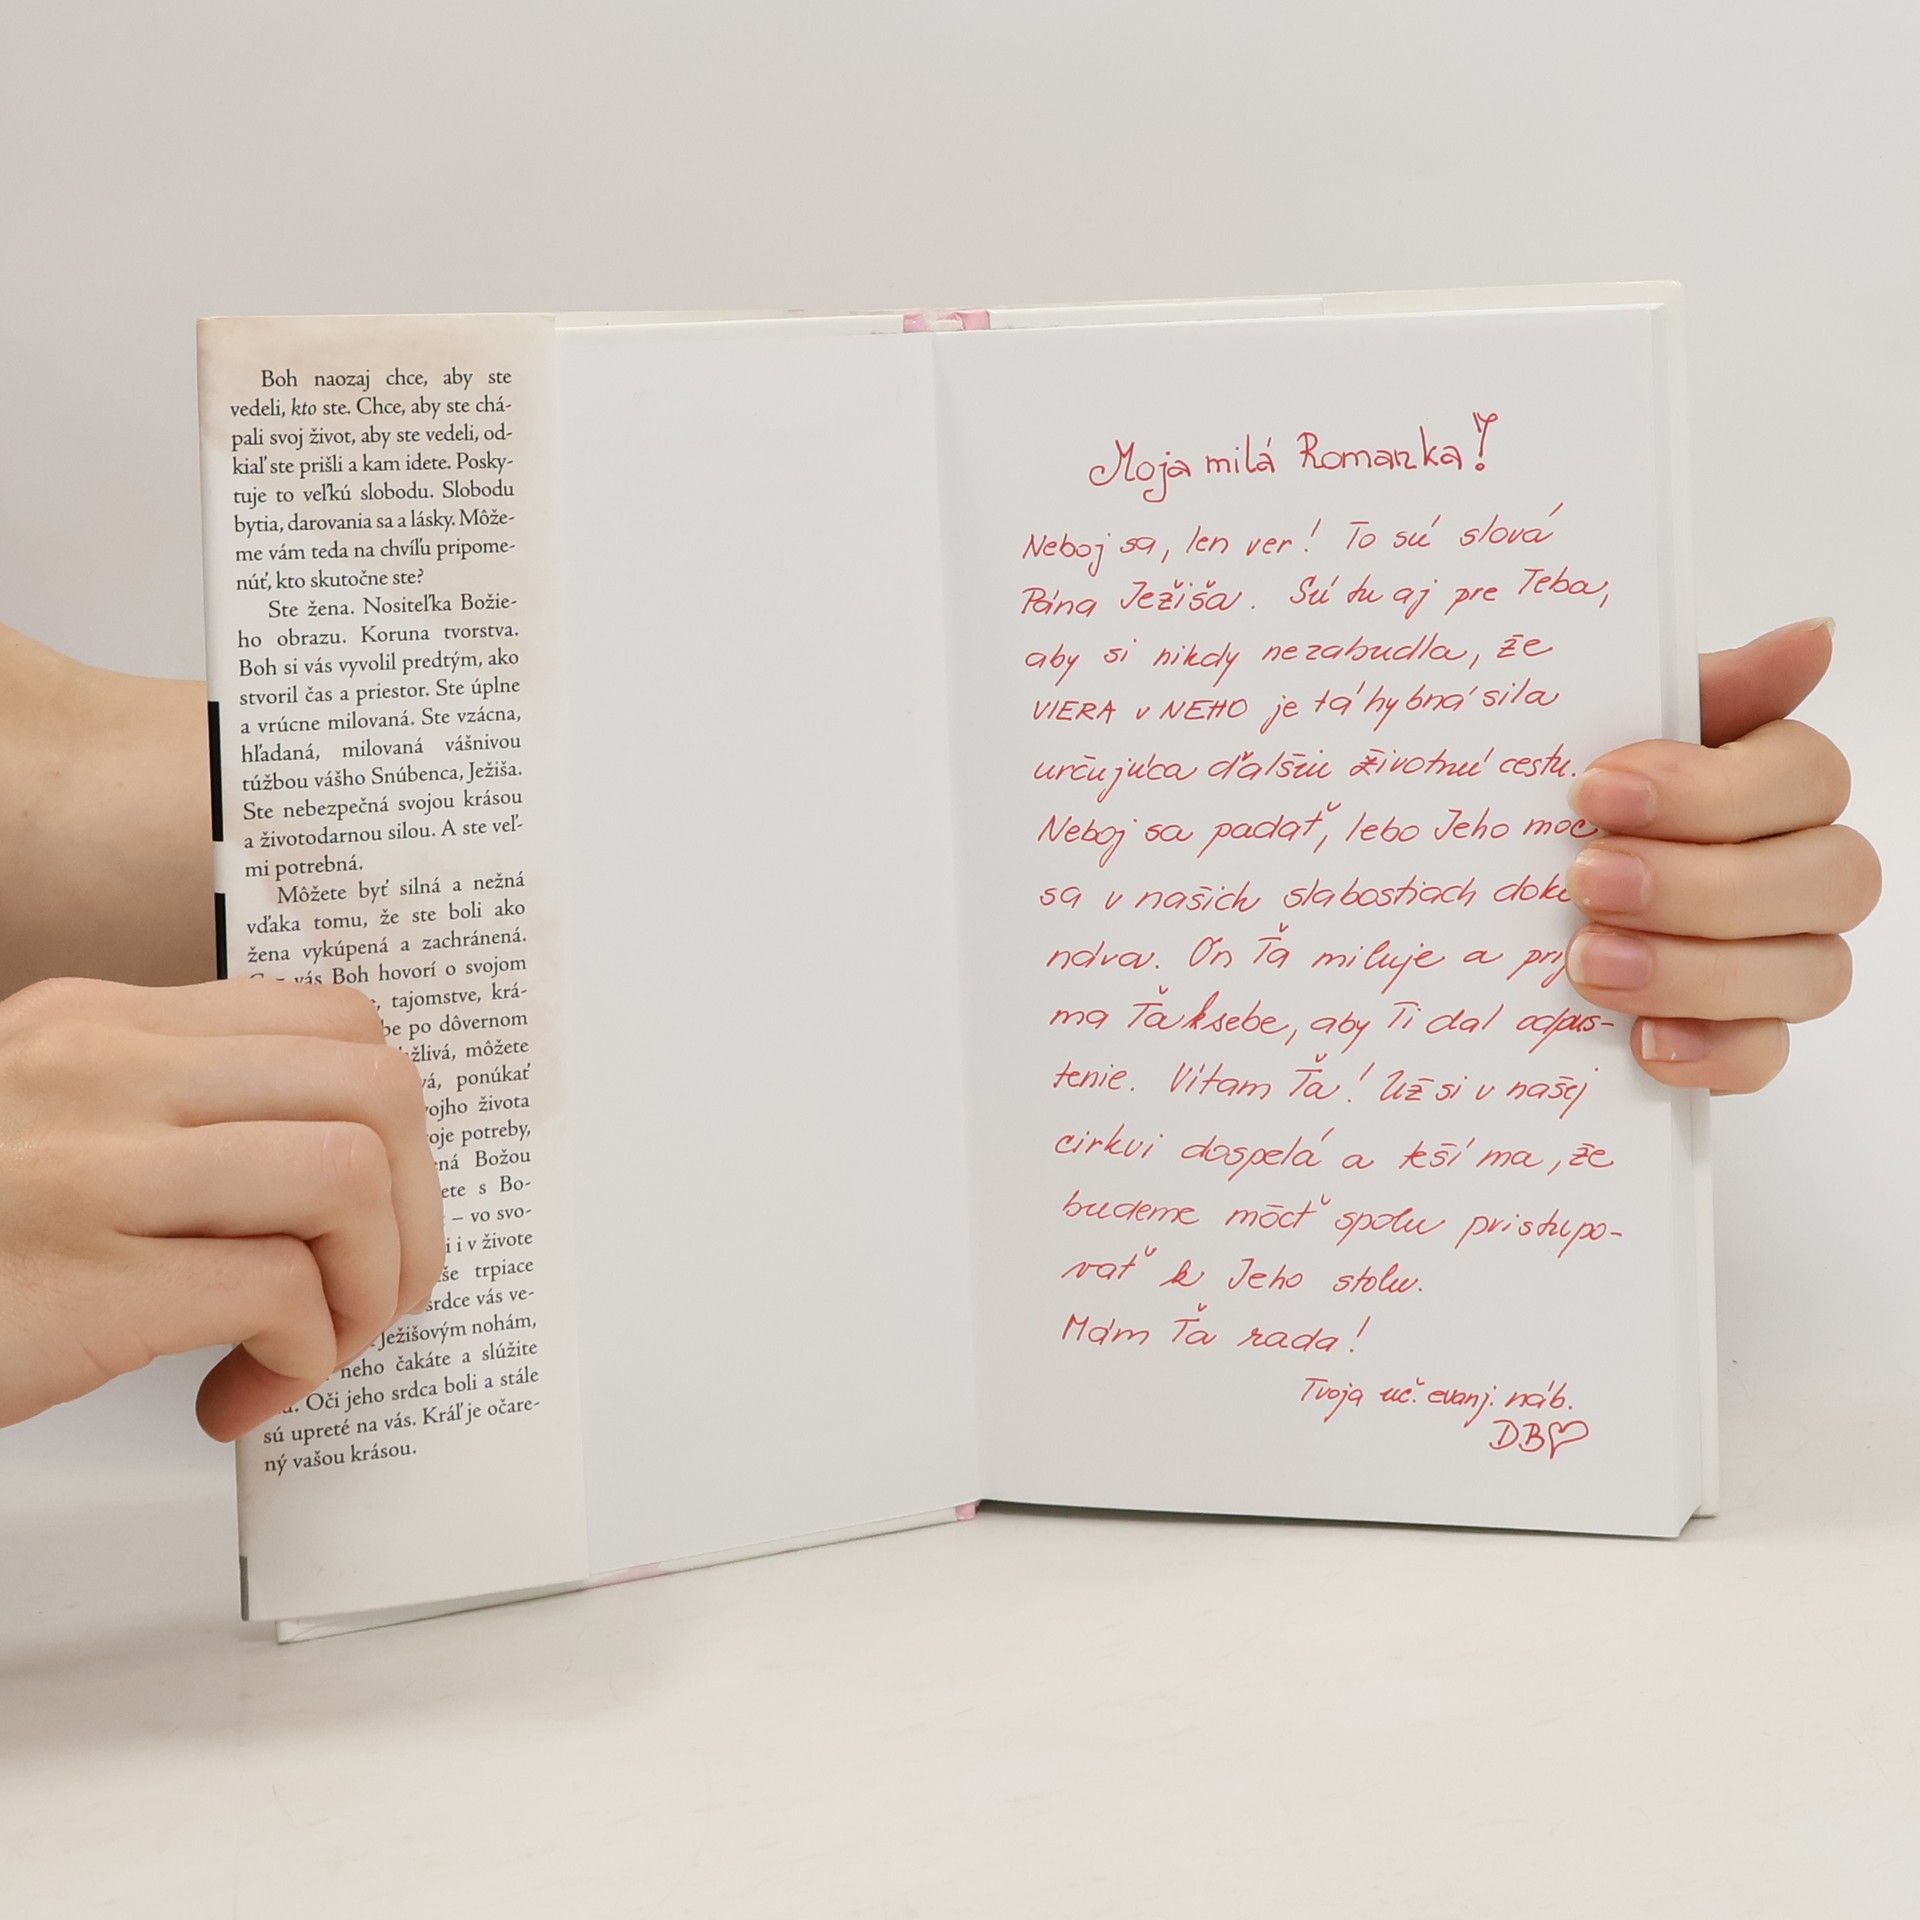 Boh naozaj chce, aby ste
vedeli, kto ste. Chce, aby ste chá-
pali svoj život, aby ste vedeli, od-
kiaľ ste prišli a kam idete. Posky-
tuje to veľkú slobodu. Slobodu
bytia, darovania sa a lásky. Môže-
me vám teda na chvíľu pripome-
núť, kto skutočne ste?
Ste žena. Nositeľka Božie-
ho obrazu. Koruna tvorstva.
Boh si vás vyvolil predtým, ako
stvoril čas a priestor. Ste úplne
a vrúcne milovaná. Ste vzácna,
hľadaná, milovaná vášnivou
túžbou vášho Snúbenca, Ježiša.
Ste nebezpečná svojou krásou
a životodarnou silou. A ste veľ-
mi potrebná.
Môžete byť silná a nežná
vďaka tomu, že ste boli ako
žena vykúpená a zachránená.
vás Boh hovorí o svojom
tajomstve, krá-
po dôvernom
môžete
ponúkať
života
potreby,
Božou
s Bo-
– vo svo-
i v živote
trpiace
srdce vás ve-
Ježišovým nohám,
neho čakáte a slúžite
Oči jeho srdca boli a stále
sú upreté na vás. Kráľ je očare-
ný vašou krásou.
Moja milá Romanka!
Neboj sa, len ver! To sú slová
Pána Ježiša. Sú tu aj pre Teba,
aby si nikdy nezabudla, že
VIERA v NEHO je tá hybná sila
určujúca ďalšiu životnú cestu.
Neboj sa padať, lebo Jeho moc
sa v našich slabostiach doko
náva. On Ťa miluje a prij
ma Ťa k sebe, aby Ti dal odpus-
tenie. Vítam Ťa! Už si v našej
cirkvi dospelá a teší ma, že
budeme môcť spolu pristupo-
vať k Jeho stolu.
Mám Ťa rada!
Tvoja uč. evanj. náb.
DB♡